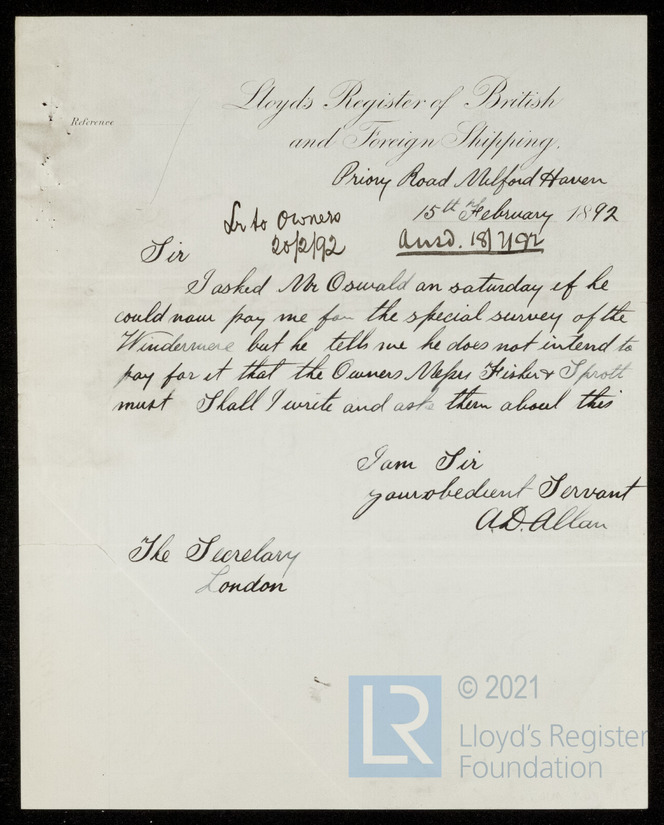 Lloyd's Register of British
and Foreign Shipping.
Reference
Priory Road Milford Haven
15th February 1892
Lr to Owners
20/2/92
Ansd. 18/2/92
Sir
I asked Mr Oswald on saturday if he
could now pay me for the special survey of the
Windermere but he tells me he does not intend to
pay for it that the Owners Messrs Fisher & Sprott
must Shall I write and ask them about this
I am Sir
your obedient Servant
A.D. Allan
The Secretary
London
LR
© 2021
Lloyd's Register
Foundation